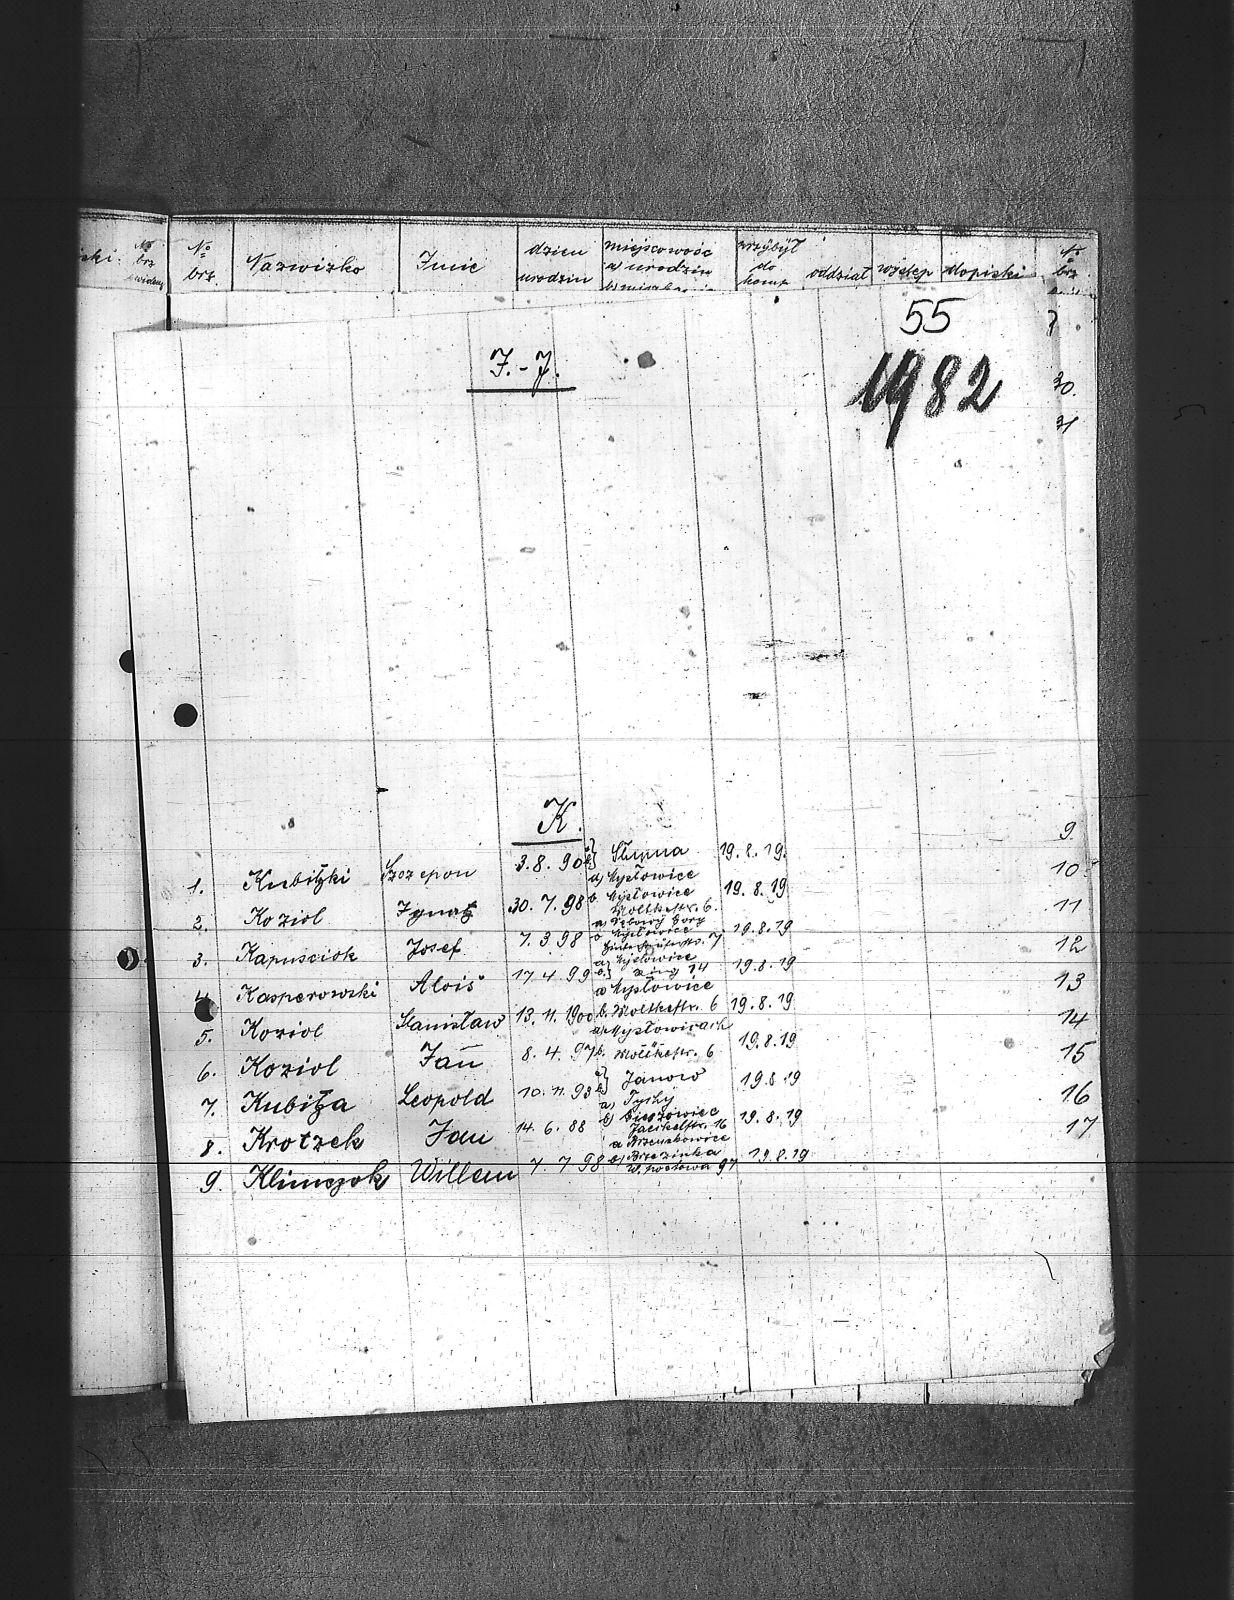 ski. No brz
No brz. Nazwizko Imie dzien urodzin miejscowość a urodzin przybył do komp oddział wstęp dopiski No brz
55
1982
30.
31
I.-J.
K.
1. Kubitzki Szczepon 3.8.90 a) b) Słupna 19.8.19. 9
2. Koziol Ignatz 30.7.98 a) Mysłowice b. Mysłowice Moltkestr. 6. 19.8.19 10
3. Kapusciok Josef 7.3.98 a) b Mysłowice 7 19.8.19 11
4. Kasperowski Alois 17.4.99 a) Mysłowice b. Ring 14 19.8.19 12
5. Koziol Stanisław 13.11.1900 a) Mysłowice b. Moltkestr. 6 19.8.19 13
6. Koziol Jan 8.4.97 a) Mysłowicach b. Moltkestr. 6 19.8.19 14
7. Kubitza Leopold 10.11.93 a) b) Janow 19.8.19 15
8. Krotzek Jan 14.6.88 a) Tychy b) 16 19.8.19 16
9. Klimczok Willem 7.7.98 a Brzenskowice b) Brzezinka 97 19.8.19 17